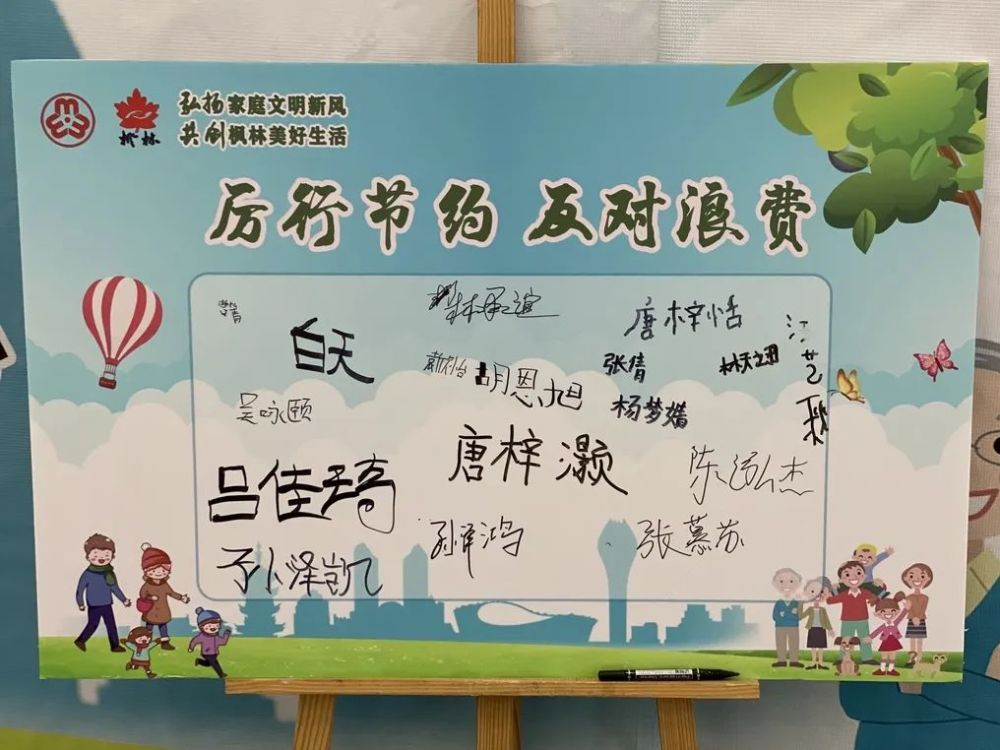 弘扬家庭文明新风
枫林
共创枫林美好生活
厉行节约 反对浪费
白天
唐梓恬
张倩
林天之丑
胡恩旭
吴咏颐
杨梦嫱
唐梓灏
吕佳琦
陈泓杰
张慕苏
孙泽凯